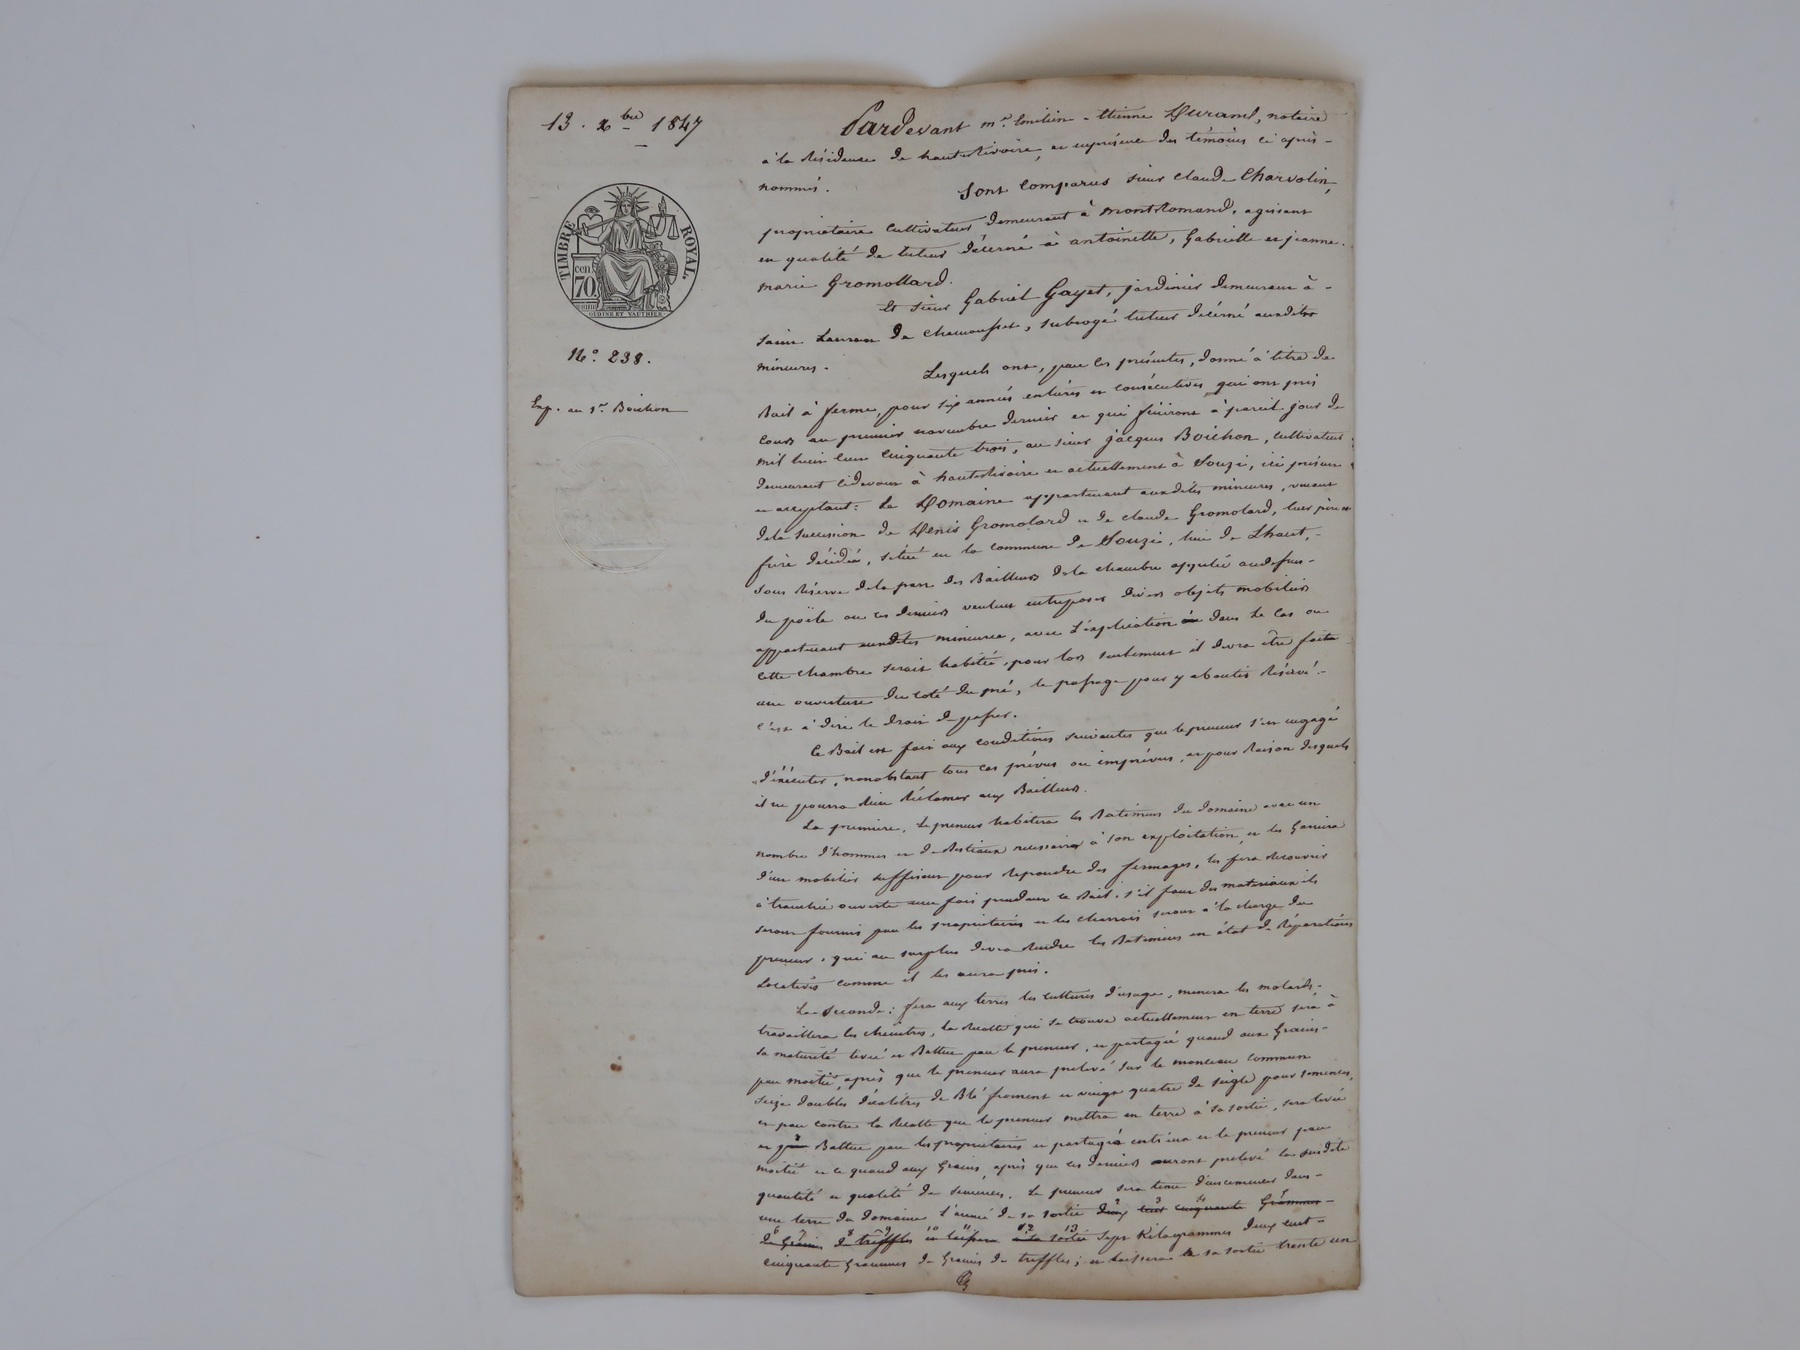 13. Xbre 1847
TIMBRE ROYAL.
cen 70
OUDINE ET VAUTHIER
No. 238.
Exp. au Sr. Boichon
Pardevant me. Emilien-Etienne Durand, notaire
à la Résidence de hauteRivoire, et en présence des témoins ci après-
nommés.
Sont comparus sieur Claude Charvolin,
propriétaire cultivateur demeurant à montRomand, agissant
en qualité de tuteur décerné à antoinette, Gabrielle et jeanne-
marie Gromollard.
Et sieur Gabriel Gayet, jardinier demeurant à-
saint Laurent de chamousset, subrogé tuteur décerné auxdites
mineures.
Lesquels ont, par les présentes, donné à titre de
Bail à ferme, pour six années entières et consécutives qui ont pris
cours au premier novembre dernier et qui finiront à pareil jour de
mil huit cent cinquante trois, au sieur jacques Boichon, cultivateur
demeurant cidevant à hauteRivoire et actuellement à Souzi, ici présent
et acceptant: Le Domaine appartenant auxdites mineures, venant
dela succession de Denis Gromolard et de claude Gromolard, leurs père et
frère décédés, situé en la commune de Souzi, lieu de Lhaut,-
sous Réserve dela part des Bailleurs dela chambre appelée audessus-
du poële ou ces derniers veulent entreposer divers objets mobiliers
appartenant auxdites mineures, avec l'explication que dans le cas ou
cette chambre serait habitée, pour lors seulement il devra être faite
une ouverture du coté du pré, le passage pour y aboutir Réservé-
c'est à dire le droit de passer.
Ce Bail est fait aux conditions suivantes que le preneur s'est engagé
d'exécuter, nonobstant tous cas prévus ou imprévus, et pour Raison desquels
il ne pourra Rien Réclamer aux Bailleurs.
La première, le preneur habitera les Batimens du domaine avec un
nombre d'hommes et de Bestiaux nécessaires à son exploitation, et les Garnira
d'un mobilier suffisant pour Répondre des fermages, les fera Recouvrir
à tranchée ouverte une fois pendant ce Bail; s'il faut des matériaux ils
seront fournis par les propriétaires et les charrois seront à la charge du
preneur, qui au surplus devra Rendre les Batimens en état de Réparations
Locatives comme il les aura pris.
La Seconde: fera aux terres les cultures d'usage, menera les molards-
travaillera les cheintres, la Récolte qui se trouve actuellement en terre sera à
sa maturité levée et Battue par le preneur, et partagée quand aux Grains-
par moitié, après que le preneur aura prelevé sur le monceau commun
seize doubles décalitres de Blé froment et vingt quatre de seigle pour semences,
et par contre la Récolte que le preneur mettra en terre à sa sortie, sera levée
et Battue par les propriétaires et partagée entr'eux et le preneur par
moitié et ce quand aux Grains, après que ces derniers auront prelevé la susdite
quantité et qualité de semences. Le preneur sera tenu d'ensemencer dans-
une terre du domaine l'année de sa sortie deux cent cinquante Grammes-
de Graines de treffles et laissera à sa sortie sept Kilogrammes deux cent-
cinquante Grammes de Graines de treffles; et laissera à sa sortie trente un